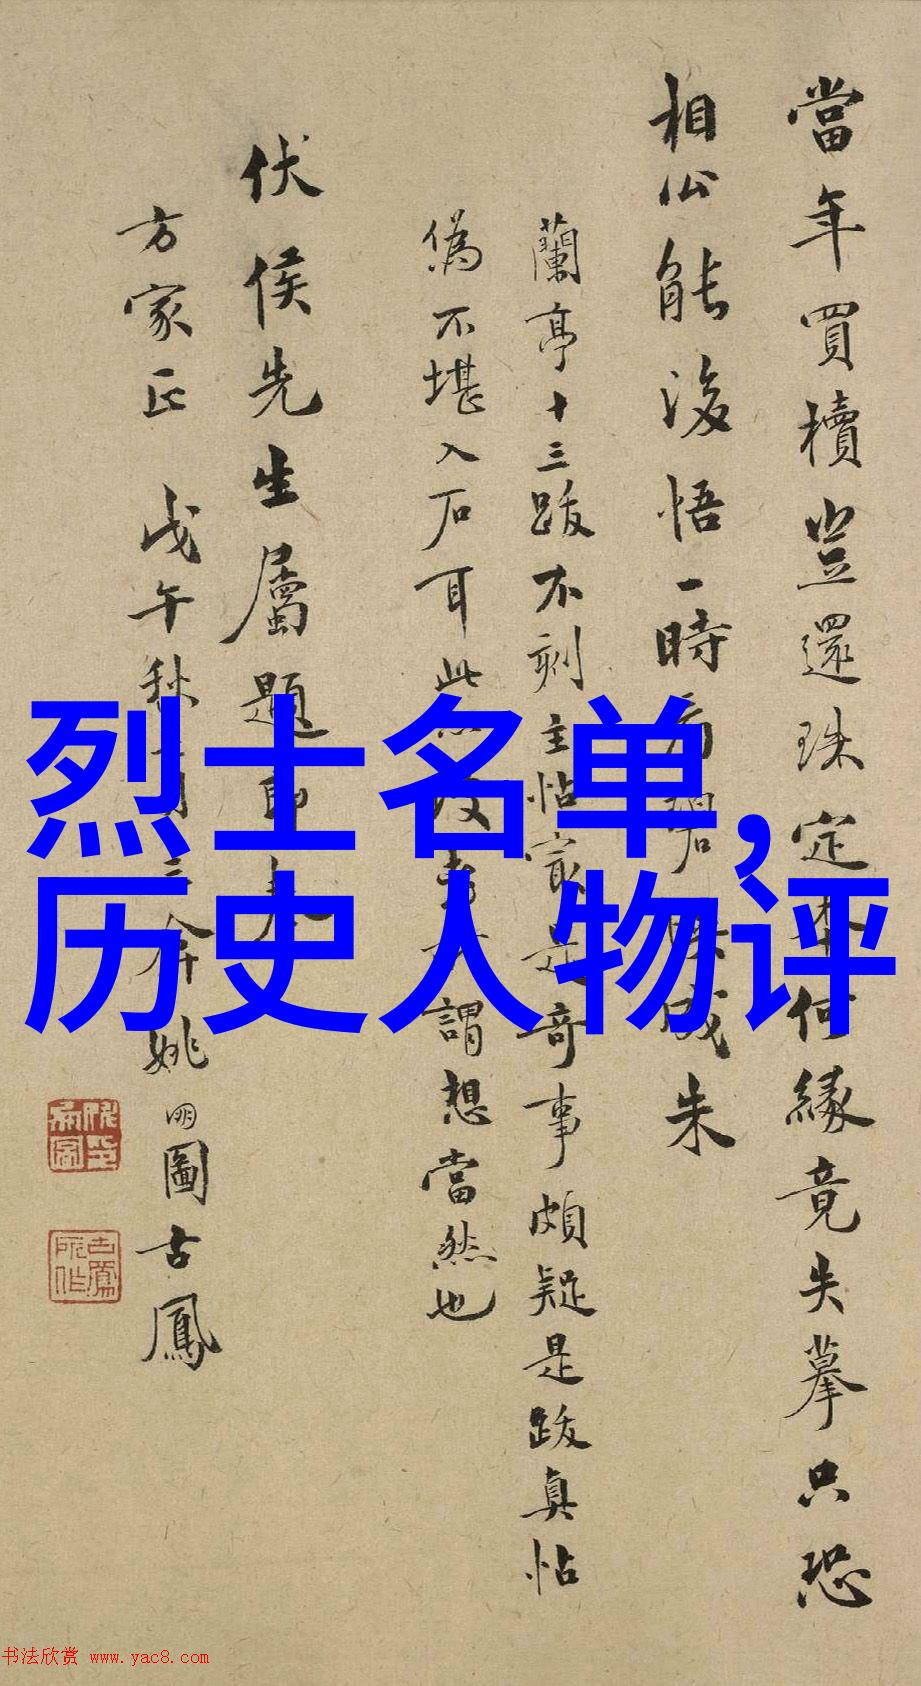 當年買櫝豈還珠定本何緣竟失摹只恐
相公能後悟一時
成朱
蘭亭十三跋不刻主帖最是奇事頗疑是跋真帖
偽不堪入石耳此
謂想當然也
伏侯先生屬題即
方家正 戊午秋
姚明圖古鳳
烈士名单,
历史人物评
书法欣赏 www.yac8.com